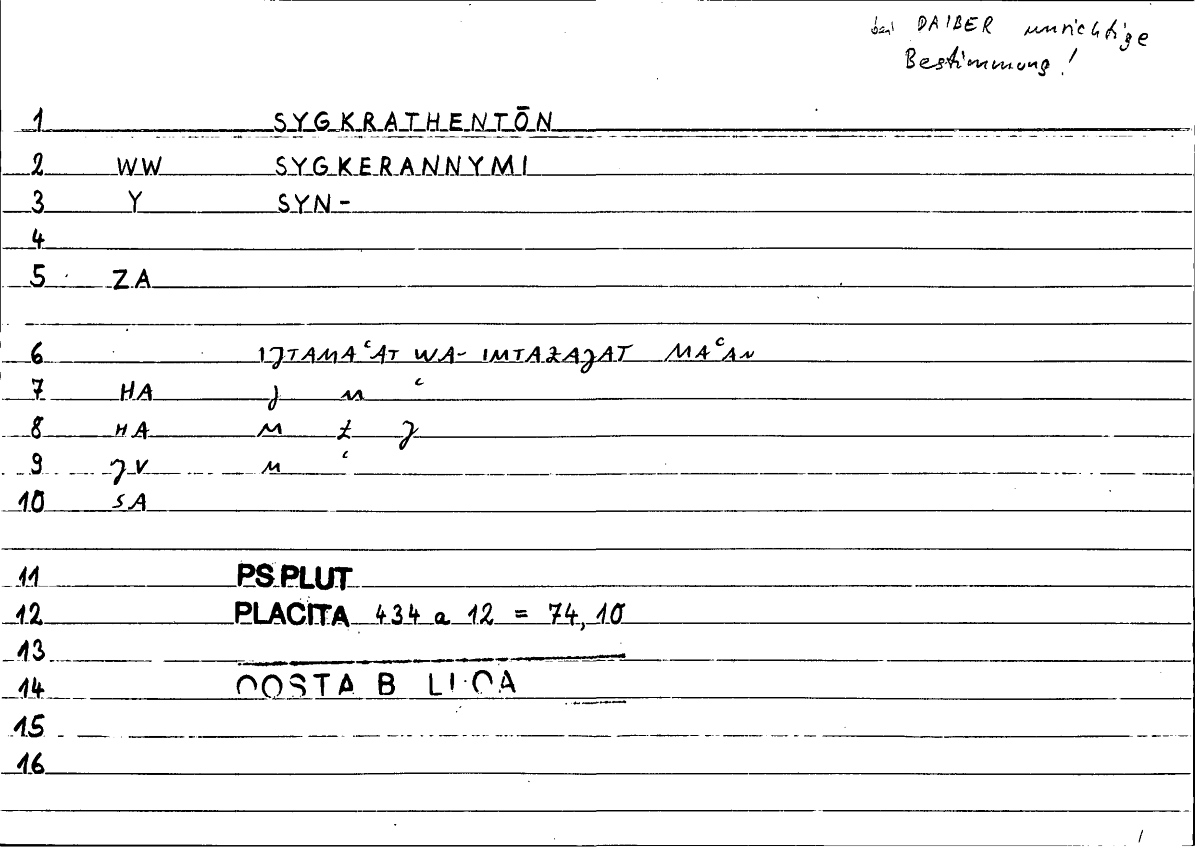 bei DAIBER unrichtige
Bestimmung!
1 SYGKRATHENTŌN
2 WW SYGKERANNYMI
3 Y SYN-
4
5 ZA
6 IJTAMAʿAT WA- IMTAZAJAT MAʿAN
7 HA J M ʿ
8 HA M Z J
9 JV M ʿ
10 SA
11 PS PLUT
12 PLACITA 434 a 12 = 74,10
13
14 COSTA B LUCA
15
16